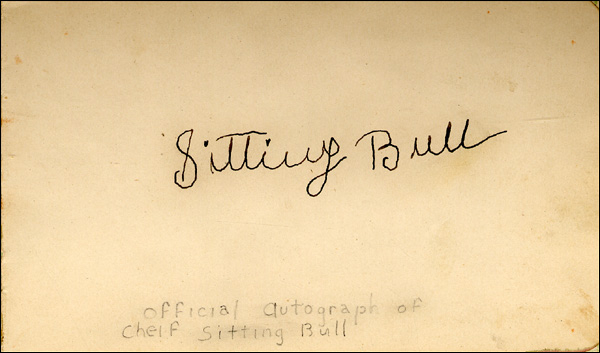 Sitting Bull
Official autograph of
Cheif Sitting Bull